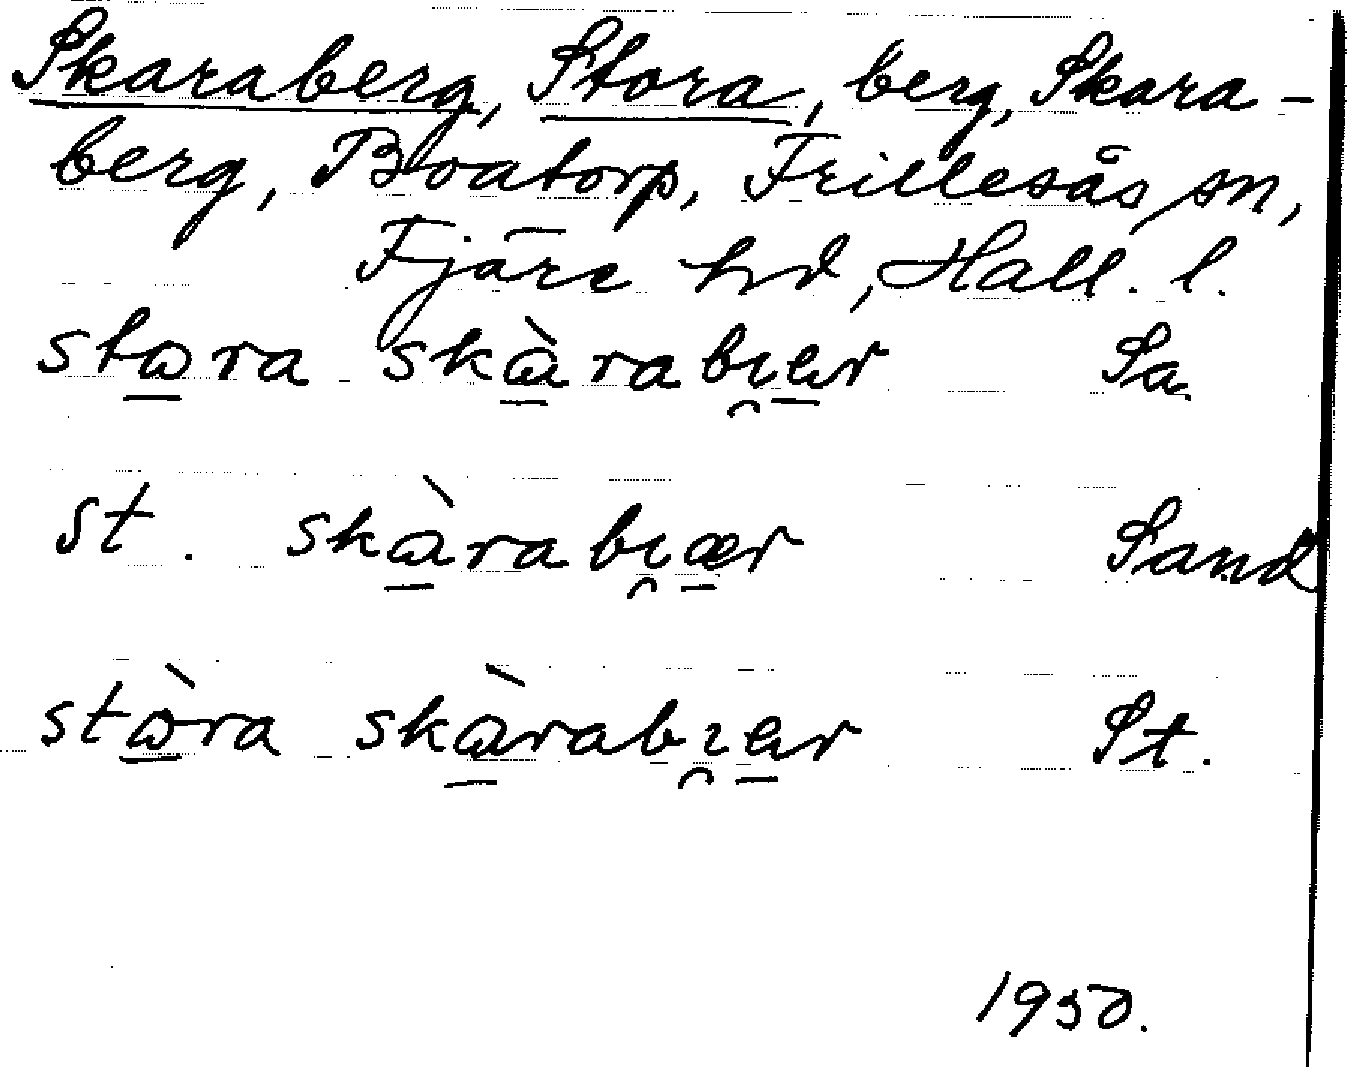 Skaraberg, Stora, berg, Skara-
berg, Boatorp, Frillesås sn,
Fjäre hd, Hall. l.
stɷra skàrabı̯ær Sa.
st. skàrabı̯ær Sand
stɷ̀ra skàrabı̯ær St.
1950.